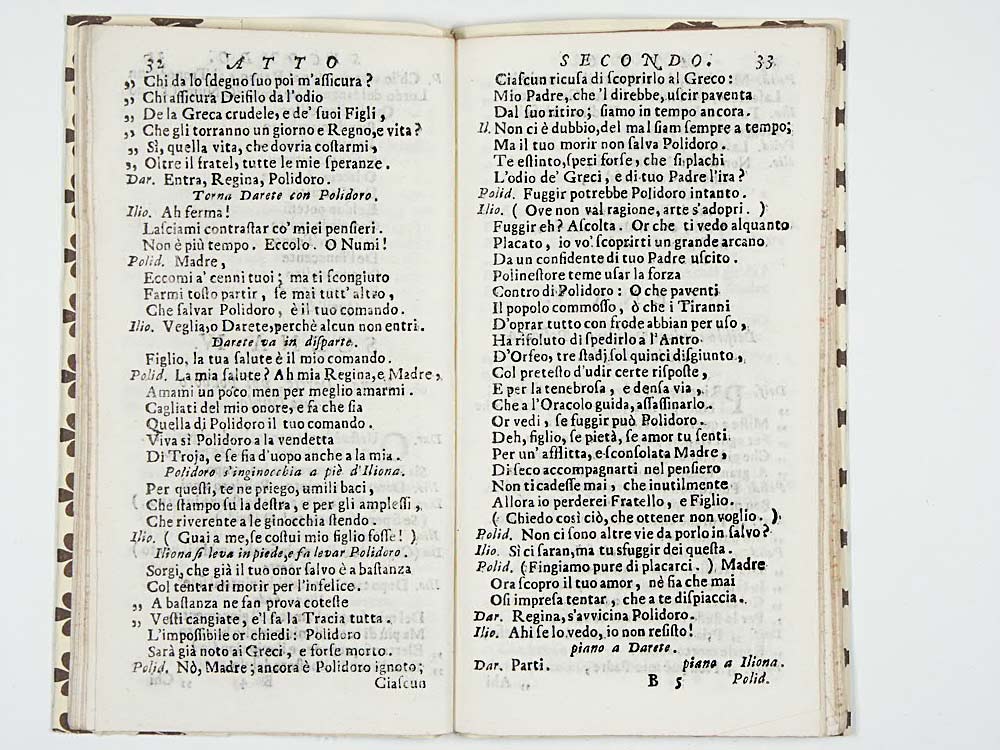 32 ATTO
„ Chi da lo ſdegno ſuo poi m'aſſicura ?
„ Chi aſſicura Deifilo da l'odio
„ De la Greca crudele, e de' ſuoi Figli ,
„ Che gli torranno un giorno e Regno, e vita ?
„ Sì, quella vita, che dovria coſtarmi ,
„ Oltre il fratel, tutte le mie ſperanze .
Dar. Entra, Regina, Polidoro .
Torna Darete con Polidoro .
Ilio. Ah ferma !
Laſciami contraſtar co' miei penſieri .
Non è più tempo . Eccolo . O Numi !
Polid. Madre,
Eccomi a' cenni tuoi ; ma ti ſcongiuro
Farmi toſto partir , ſe mai tutt' altro ,
Che ſalvar Polidoro , è il tuo comando .
Ilio. Veglia, o Darete, perchè alcun non entri .
Darete va in diſparte .
Figlio, la tua ſalute è il mio comando .
Polid. La mia ſalute ? Ah mia Regina, e Madre ,
Amami un poco men per meglio amarmi .
Cagliati del mio onore, e fa che ſia
Quella di Polidoro il tuo comando .
Viva sì Polidoro a la vendetta
Di Troja, e ſe fia d'uopo anche a la mia .
Polidoro s'inginocchia a piè d'Iliona .
Per queſti, te ne priego, umili baci ,
Che ſtampo ſu la deſtra , e per gli ampleſſi ,
Che riverente a le ginocchia ſtendo .
Ilio. ( Guai a me, ſe coſtui mio figlio foſſe ! )
Iliona ſi leva in piede, e fa levar Polidoro .
Sorgi, che già il tuo onor ſalvo è a baſtanza
Col tentar di morir per l'infelice .
„ A baſtanza ne fan prova coteſte
„ Veſti cangiate, e'l ſa la Tracia tutta .
L'impoſſibile or chiedi : Polidoro
Sarà già noto ai Greci , e forſe morto .
Polid. Nò, Madre; ancora è Polidoro ignoto ;
Ciaſcun
SECONDO. 33
Ciaſcun ricuſa di ſcoprirlo al Greco :
Mio Padre, che 'l direbbe, uſcir paventa
Dal ſuo ritiro ; ſiamo in tempo ancora .
Il. Non ci è dubbio, del mal ſiam ſempre a tempo ;
Ma il tuo morir non ſalva Polidoro .
Te eſtinto, ſperi forſe, che ſi plachi
L'odio de' Greci , e di tuo Padre l'ira ?
Polid. Fuggir potrebbe Polidoro intanto .
Ilio. ( Ove non val ragione, arte s'adopri . )
Fuggir eh? Aſcolta . Or che ti vedo alquanto
Placato, io vo' ſcoprirti un grande arcano
Da un confidente di tuo Padre uſcito .
Polineſtore teme uſar la forza
Contro di Polidoro : O che paventi
Il popolo commoſſo , ò che i Tiranni
D'oprar tutto con frode abbian per uſo ,
Ha riſoluto di ſpedirlo a l'Antro
D'Orfeo, tre ſtadj ſol quinci diſgiunto ,
Col preteſto d'udir certe riſpoſte ,
E per la tenebroſa , e denſa via ,
Che a l'Oracolo guida, aſſaſſinarlo .
Or vedi , ſe fuggir può Polidoro .
Deh, figlio, ſe pietà, ſe amor tu ſenti
Per un' afflitta, e ſconſolata Madre ,
Di ſeco accompagnarti nel penſiero
Non ti cadeſſe mai , che inutilmente
Allora io perderei Fratello , e Figlio .
( Chiedo così ciò, che ottener non voglio . )
Polid. Non ci ſono altre vie da porlo in ſalvo ?
Ilio. Sì ci ſaran, ma tu sfuggir dei queſta .
Polid. ( Fingiamo pure di placarci . ) Madre
Ora ſcopro il tuo amor , nè ſia che mai
Oſi impreſa tentar , che a te diſpiaccia .
Dar. Regina, s'avvicina Polidoro .
Ilio. Ahi ſe lo vedo, io non reſiſto !
piano a Darete .
Dar. Parti . piano a Iliona .
B 5 Polid.